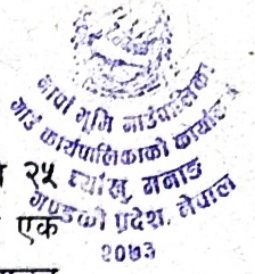 नार्पा भूमि गाउँपालिका
गाउँ कार्यपालिकाको कार्यालय
२५ घ्याखु, मनाङ
एक गण्डकी प्रदेश, नेपाल
२०७३